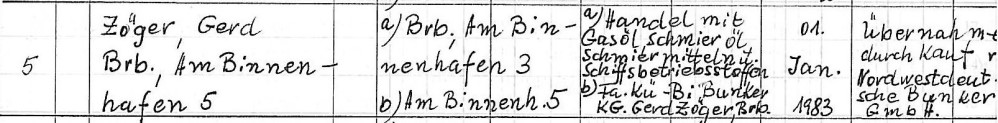 5
Zöger, Gerd
Brb., Am Binnen-
hafen 5
a) Brb., Am Bin-
nenhafen 3
b) Am Binnenh. 5
a) Handel mit
Gasöl, Schmieröl,
Schmiermitteln u.
Schiffsbetriebsstoffen
b) Fa. Kü-Bi Bunker
KG. Gerd Zöger, Brb.
01.
Jan.
1983
Übernahme
durch Kauf
Nordwestdeut-
sche Bunker
GmbH.